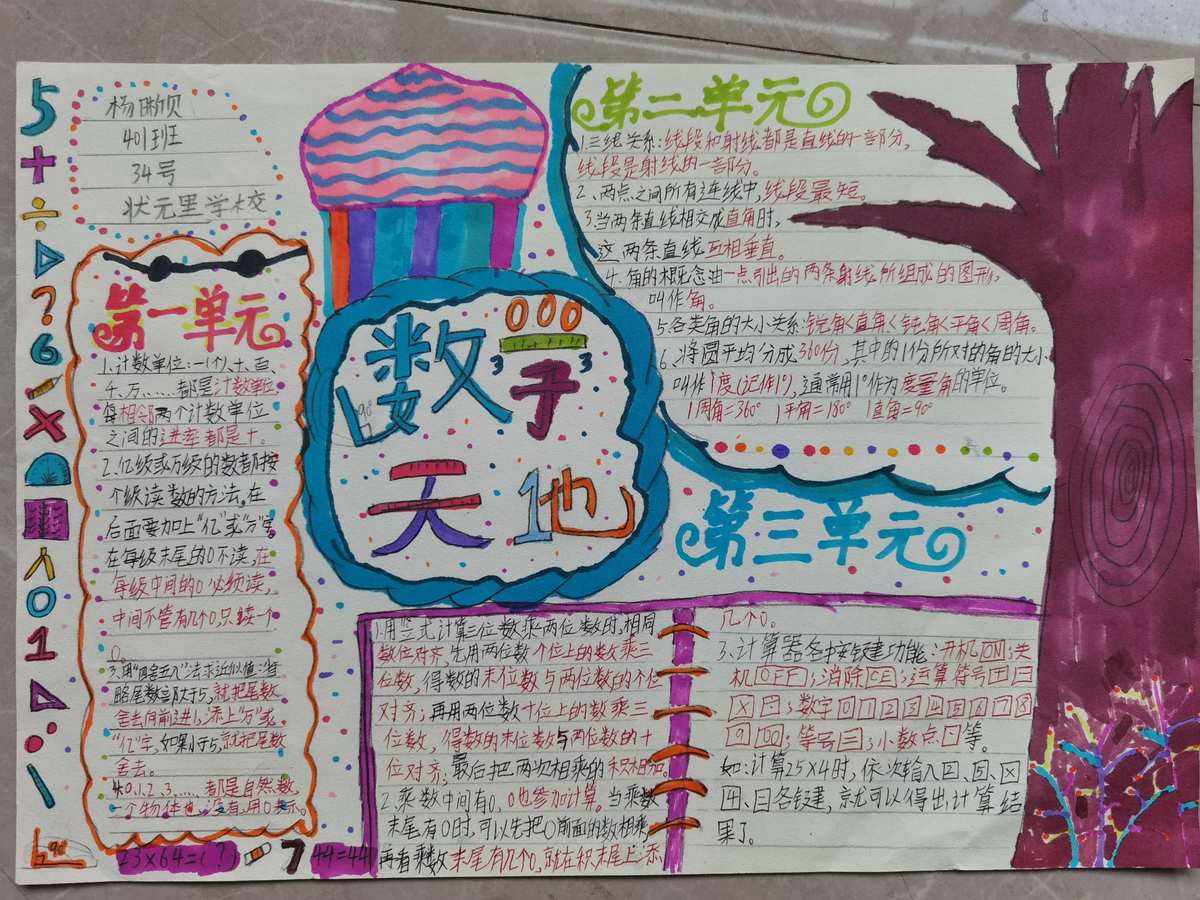 杨
401班
34号
状元里学校
第一单元
1.计数单位:一(个)、十、百、
千、万……都是计数单位,
每相邻两个计数单位
之间的进率都是十。
2.亿级或万级的数都按
个级读数的方法,在
后面要加上“亿”或“万”字,
在每级末尾的0不读,在
每级中间的0必须读,
中间不管有几个0,只读一个
0。
3.用“四舍五入”法求近似值:省
略尾数部大于5,就把尾数
舍去向前进1,添上“万”或
“亿”字,如果小于5,就把尾数
舍去。
4.0、1、2、3……都是自然数,
一个物体也没有,用0表示。
数字
天地
第二单元
1.三线关系:线段和射线都是直线的一部分,
线段是射线的一部分。
2、两点之间所有连线中,线段最短。
3.当两条直线相交成直角时,
这两条直线互相垂直。
4.角的概念由一点引出的两条射线所组成的图形,
叫作角。
5.各类角的大小关系:锐角<直角<钝角<平角<周角。
6、将圆平均分成360份,其中的1份所对的角的大小
叫作1度(记作1°),通常用1°作为度量角的单位。
1周角=360° 1平角=180° 1直角=90°
第三单元
1.用竖式计算三位数乘两位数时,相同
数位对齐,先用两位数个位上的数乘三
位数,得数的末位数与两位数的个位
对齐;再用两位数十位上的数乘三
位数,得数的末位数与两位数的十
位对齐;最后把两次相乘的积相加。
2.乘数中间有0,0也参加计算。当乘数
末尾有0时,可以先把0前面的数相乘,
再看乘数末尾有几个0,就在积末尾上添
几个0。
3、计算器各中按键功能:开机ON;关
机OFF;消除CE;运算符号+-
×÷;数字0 1 2 3 4 5 6 7 8
9 00;等号=;小数点·等。
如:计算25×4时,依次输入2、5、×
4、=各键,就可以得出计算结
果了。
90°
23×64=(?)
7
44=44